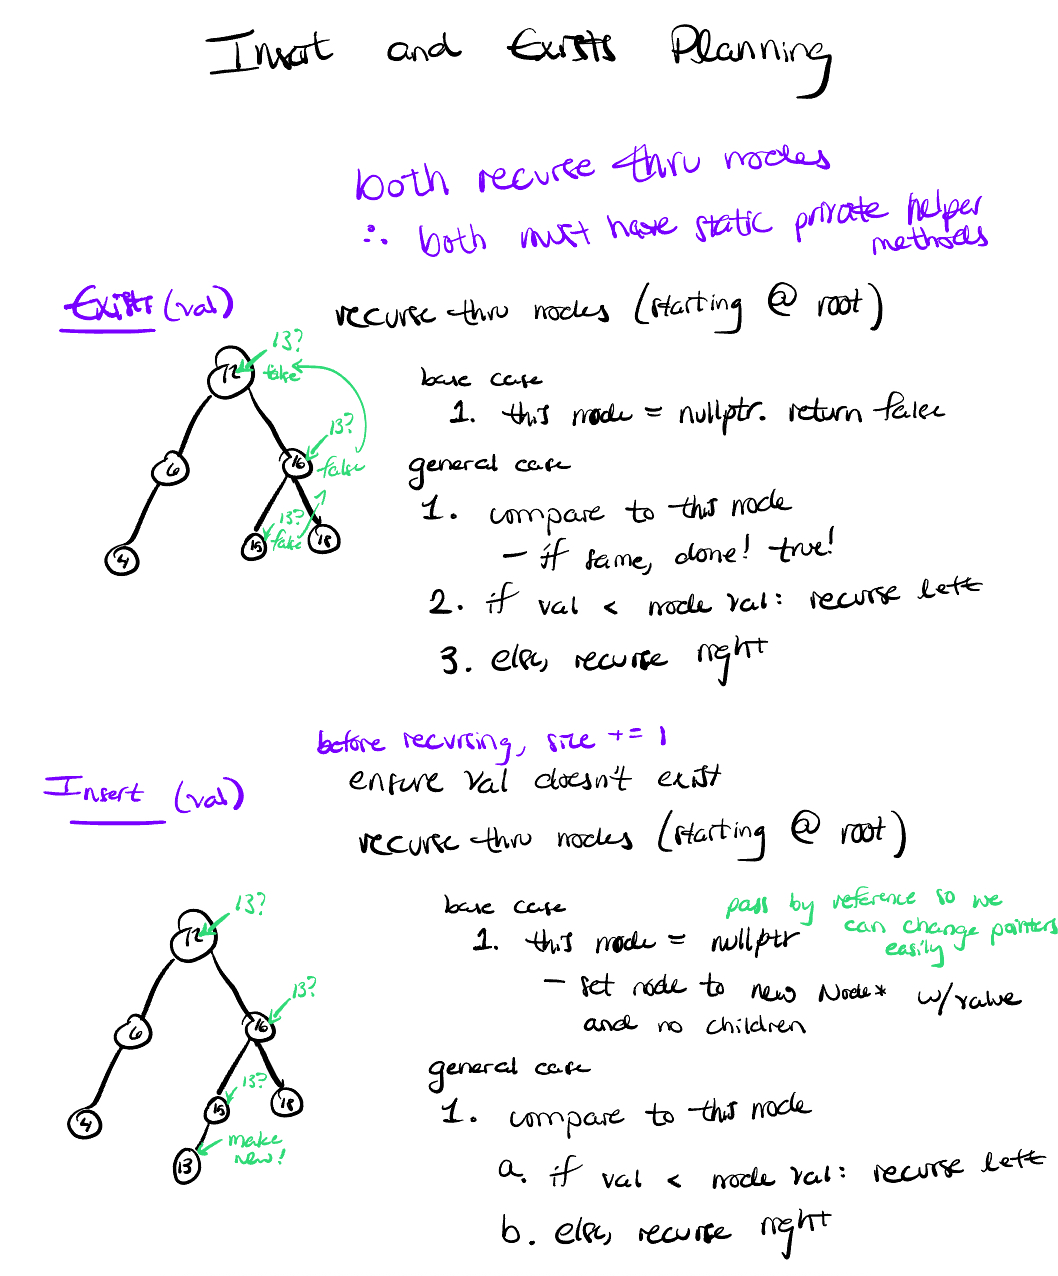 Insert and Exists Planning
both recurse thru nodes
∴ both must have static private helper
methods
Exists (val)
recurse thru nodes (starting @ root)
13?
12
false
base case
1. this node = nullptr. return false
13?
6
16
false
general case
1. compare to this node
13?
4
15
false
18
- if same, done! true!
2. if val < node val: recurse left
3. else, recurse right
before recursing, size += 1
Insert (val)
ensure val doesn't exist
recurse thru nodes (starting @ root)
13?
12
base case
pass by reference so we
can change pointers
easily
1. this node = nullptr
- set node to new Node* w/value
and no children
13?
6
16
general case
13?
4
15
18
1. compare to this node
make
new!
13
a. if val < node val: recurse left
b. else, recurse right